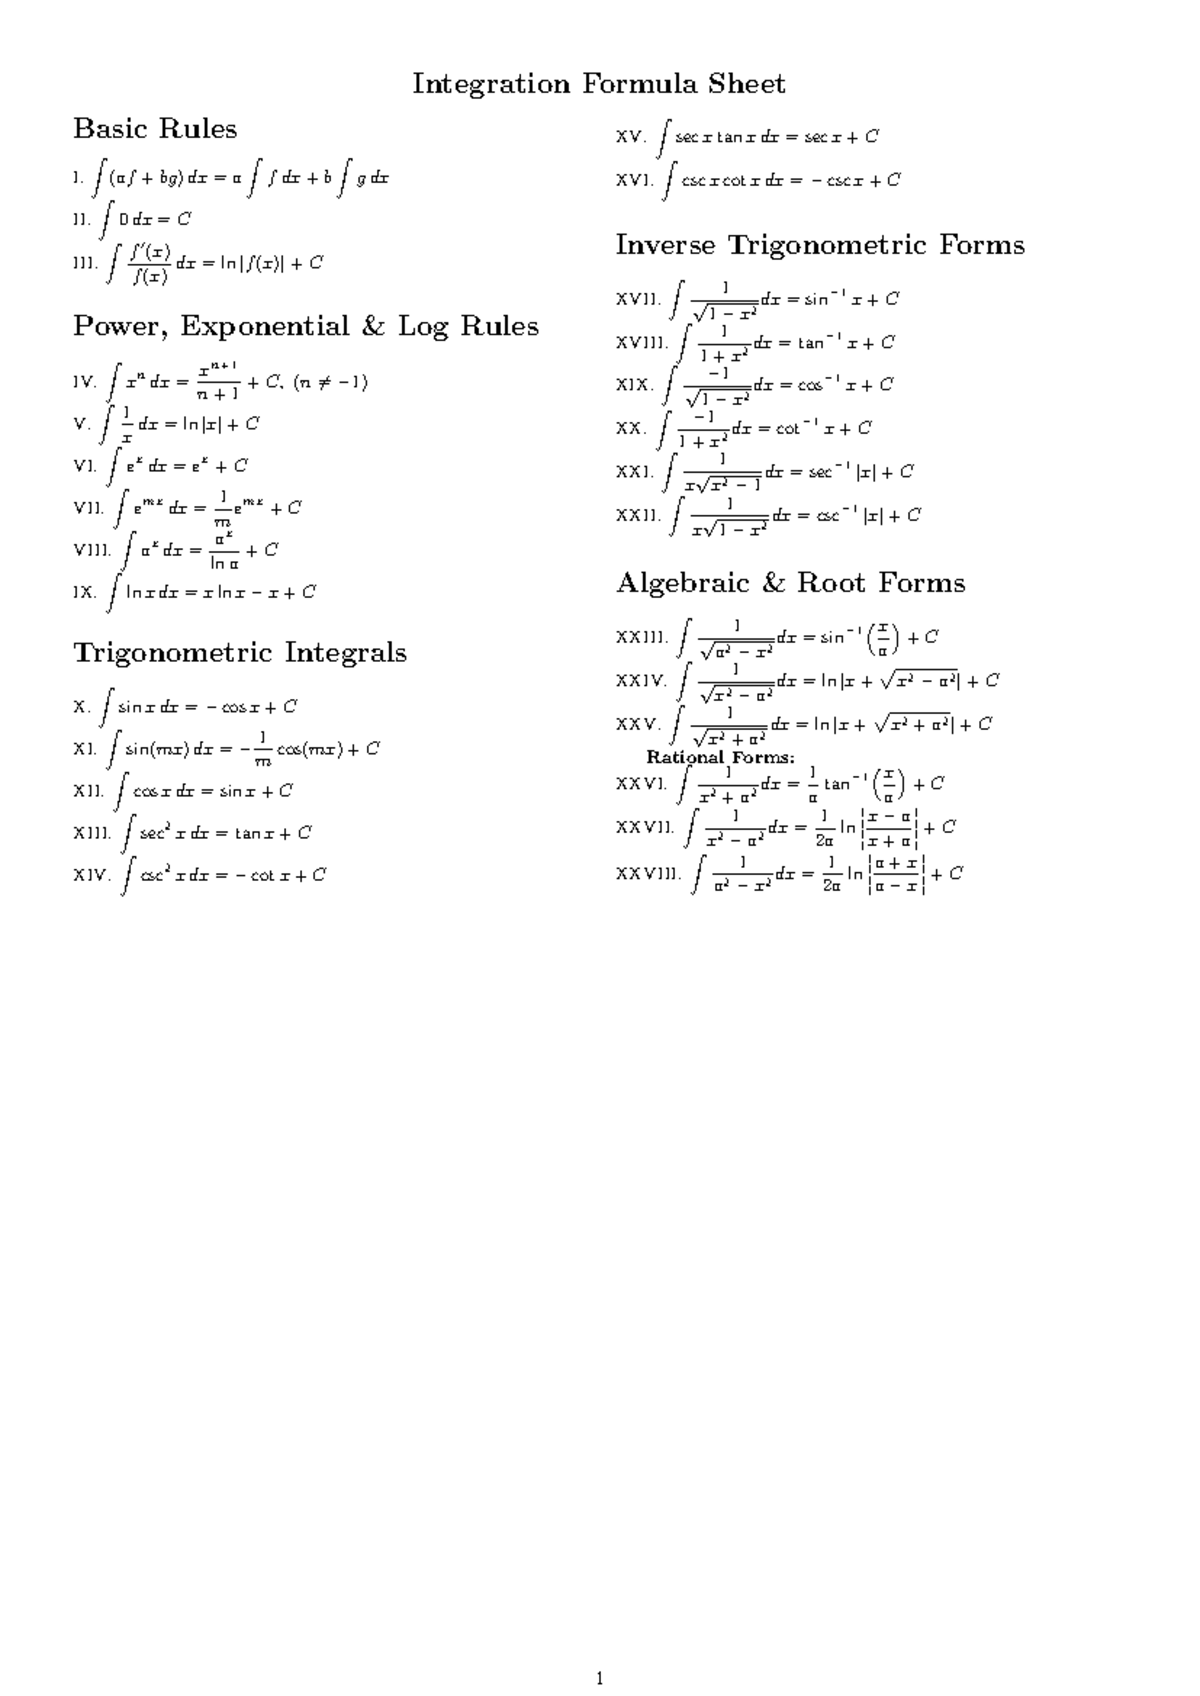 Integration Formula Sheet
Basic Rules
I. ∫(af + bg) dx = a ∫ f dx + b ∫ g dx
II. ∫ 0 dx = C
III. ∫ f′(x)/f(x) dx = ln |f(x)| + C
Power, Exponential & Log Rules
IV. ∫ xⁿ dx = xⁿ⁺¹/(n + 1) + C, (n ≠ −1)
V. ∫ 1/x dx = ln |x| + C
VI. ∫ eˣ dx = eˣ + C
VII. ∫ eᵐˣ dx = 1/m eᵐˣ + C
VIII. ∫ aˣ dx = aˣ/ln a + C
IX. ∫ ln x dx = x ln x − x + C
Trigonometric Integrals
X. ∫ sin x dx = − cos x + C
XI. ∫ sin(mx) dx = −1/m cos(mx) + C
XII. ∫ cos x dx = sin x + C
XIII. ∫ sec² x dx = tan x + C
XIV. ∫ csc² x dx = − cot x + C
XV. ∫ sec x tan x dx = sec x + C
XVI. ∫ csc x cot x dx = − csc x + C
Inverse Trigonometric Forms
XVII. ∫ 1/√(1 − x²) dx = sin⁻¹ x + C
XVIII. ∫ 1/(1 + x²) dx = tan⁻¹ x + C
XIX. ∫ −1/√(1 − x²) dx = cos⁻¹ x + C
XX. ∫ −1/(1 + x²) dx = cot⁻¹ x + C
XXI. ∫ 1/(x√(x² − 1)) dx = sec⁻¹ |x| + C
XXII. ∫ 1/(x√(1 − x²)) dx = csc⁻¹ |x| + C
Algebraic & Root Forms
XXIII. ∫ 1/√(a² − x²) dx = sin⁻¹ (x/a) + C
XXIV. ∫ 1/√(x² − a²) dx = ln |x + √(x² − a²)| + C
XXV. ∫ 1/√(x² + a²) dx = ln |x + √(x² + a²)| + C
Rational Forms:
XXVI. ∫ 1/(x² + a²) dx = 1/a tan⁻¹ (x/a) + C
XXVII. ∫ 1/(x² − a²) dx = 1/2a ln |(x − a)/(x + a)| + C
XXVIII. ∫ 1/(a² − x²) dx = 1/2a ln |(a + x)/(a − x)| + C
1